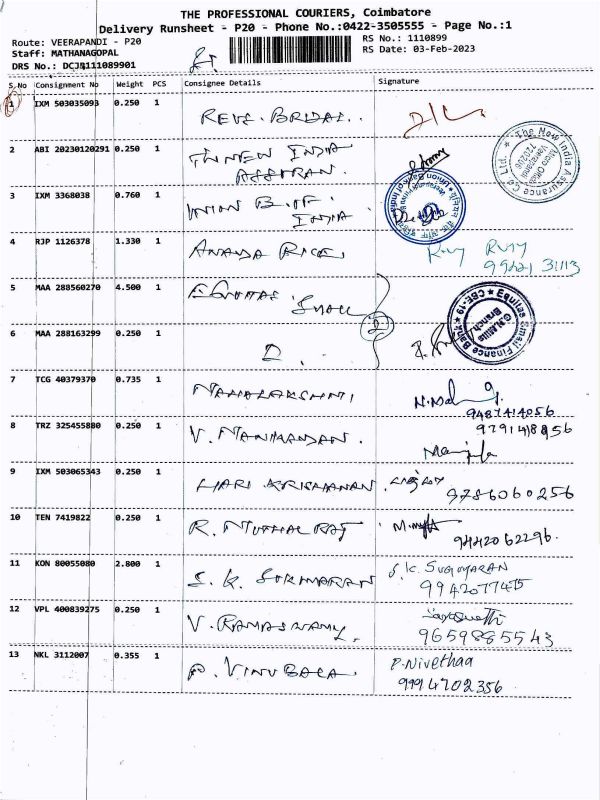 THE PROFESSIONAL COURIERS, Coimbatore
Delivery Runsheet - P20 - Phone No.:0422-3505555 - Page No.:1
Route: VEERAPANDI - P20
RS No.: 1110899
Staff: MATHANAGOPAL
RS Date: 03-Feb-2023
DRS No.: DCJB111089901
S.No Consignment No Weight PCS Consignee Details Signature
1 IXM 503035093 0.250 1
D/L
2 ABI 20230120291 0.250 1 INDIA
The New India Assurance Co. Ltd.
Micro Office
Veerapandi
720206
3 IXM 3368038 0.760 1 UNION B. OF.
INDIA
4 RJP 1126378 1.330 1 ANANDA RICE
5 MAA 288560270 4.500 1 SMALL
2
Equitas Small Finance Bank CBE-19
G.N.Mills
Branch
6 MAA 288163299 0.250 1 D.
7 TCG 40379370 0.735 1 MAHALAKSHMI
9487414056
8 TRZ 325455880 0.250 1 V. MANIKANDAN.
9791418956
9 IXM 503065343 0.250 1 HARI KRISHANAN.
9786060256
10 TEN 7419822 0.250 1 R. MUTHAL RAJ
9442062296.
11 KON 80055080 2.800 1 S. K. SUKMARAN S.K. SUGUMARAN
9942077475
12 VPL 400839275 0.250 1 V. RAMASWAMY.
9659885543
13 NKL 3112007 0.355 1 P. VINUBALA P. Nivethaa
9994702356